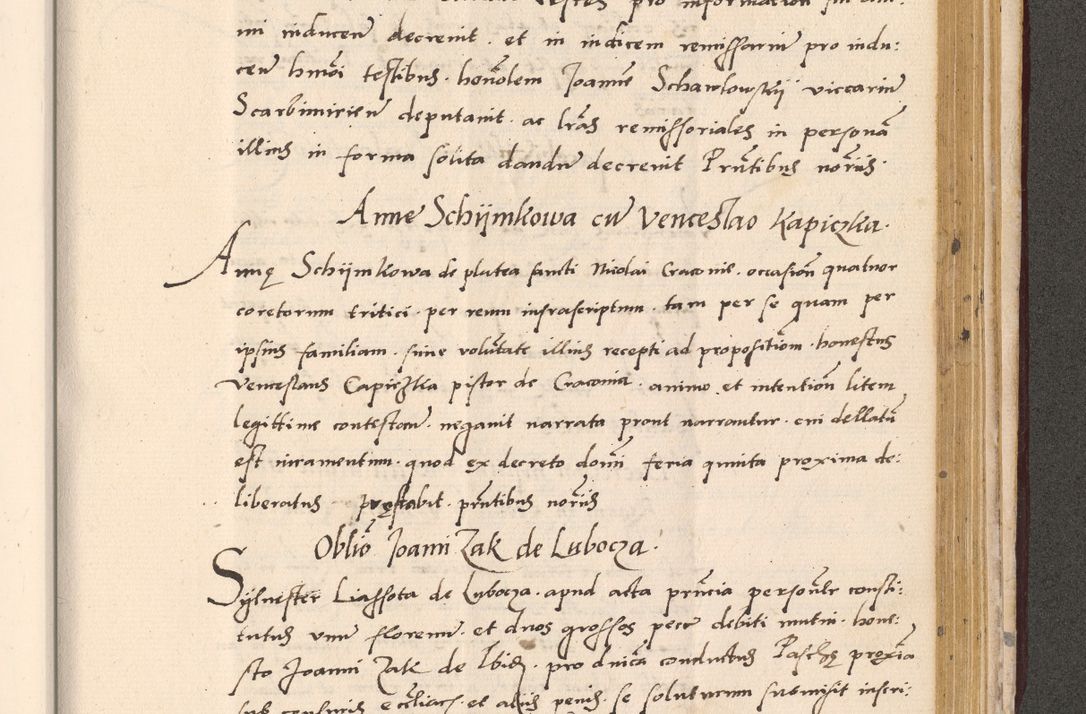 mi inducen̄ decrevit. et in iudicem remissoriū pro indu:
cen̄ hm̄oi testibus. honōlem Joannē Schawlowskij viccariū
Scarbimirien̄ deputavit. ac lr̄as remissoriales in personā
illius in forma solita dandū decrevit Prn̄tibus noriis.
Anne Schijmkowa cū Venceslao Kapiczka.
Annę Schijmkowa de platea sancti Nicolai Cracovie. occasion̄ quatuor
coretorum tritici. per reum infrascriptum. tam per se quam per
ipsius familiam. sine volūtate illius recepti ad propositiōm. honestus
Venceslaus Capiczka pistor de Cracovia. animo et intention̄ litem
legittime contestan̄. negavit narrata prout narrantur. cui dellatū
est iuramentum. quod ex decreto domi feria quinta proxima de:
liberatus pręstabit. prn̄tibus noriis
Obliō Joanni Zak de Lubocza.
Sylvester Liassota de Lubocza. apud acta prn̄cia persoālr consti:
tutus unū florenū. et duos grossos pecc̄ debiti mutui. hone:
sto Joanni Zak de Ibid. pro dn̄ica conductus Paschę proxīa
sub censuris eccliacis. et aliis penis. se soluturum submisit inscri: